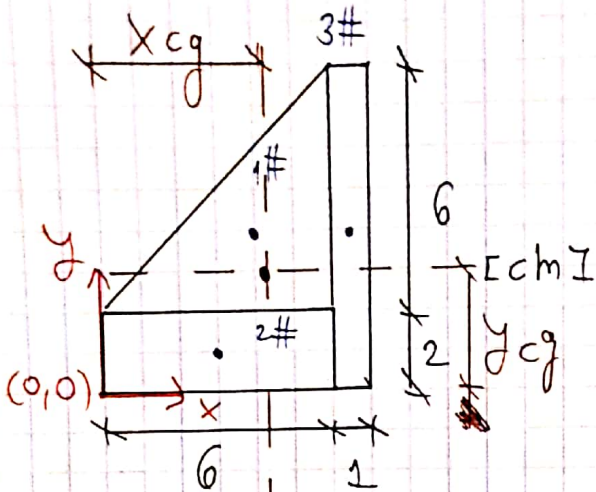 Xcg
3#
1#
6
y
[cm]
2#
2
ycg
(0,0)
x
6
1